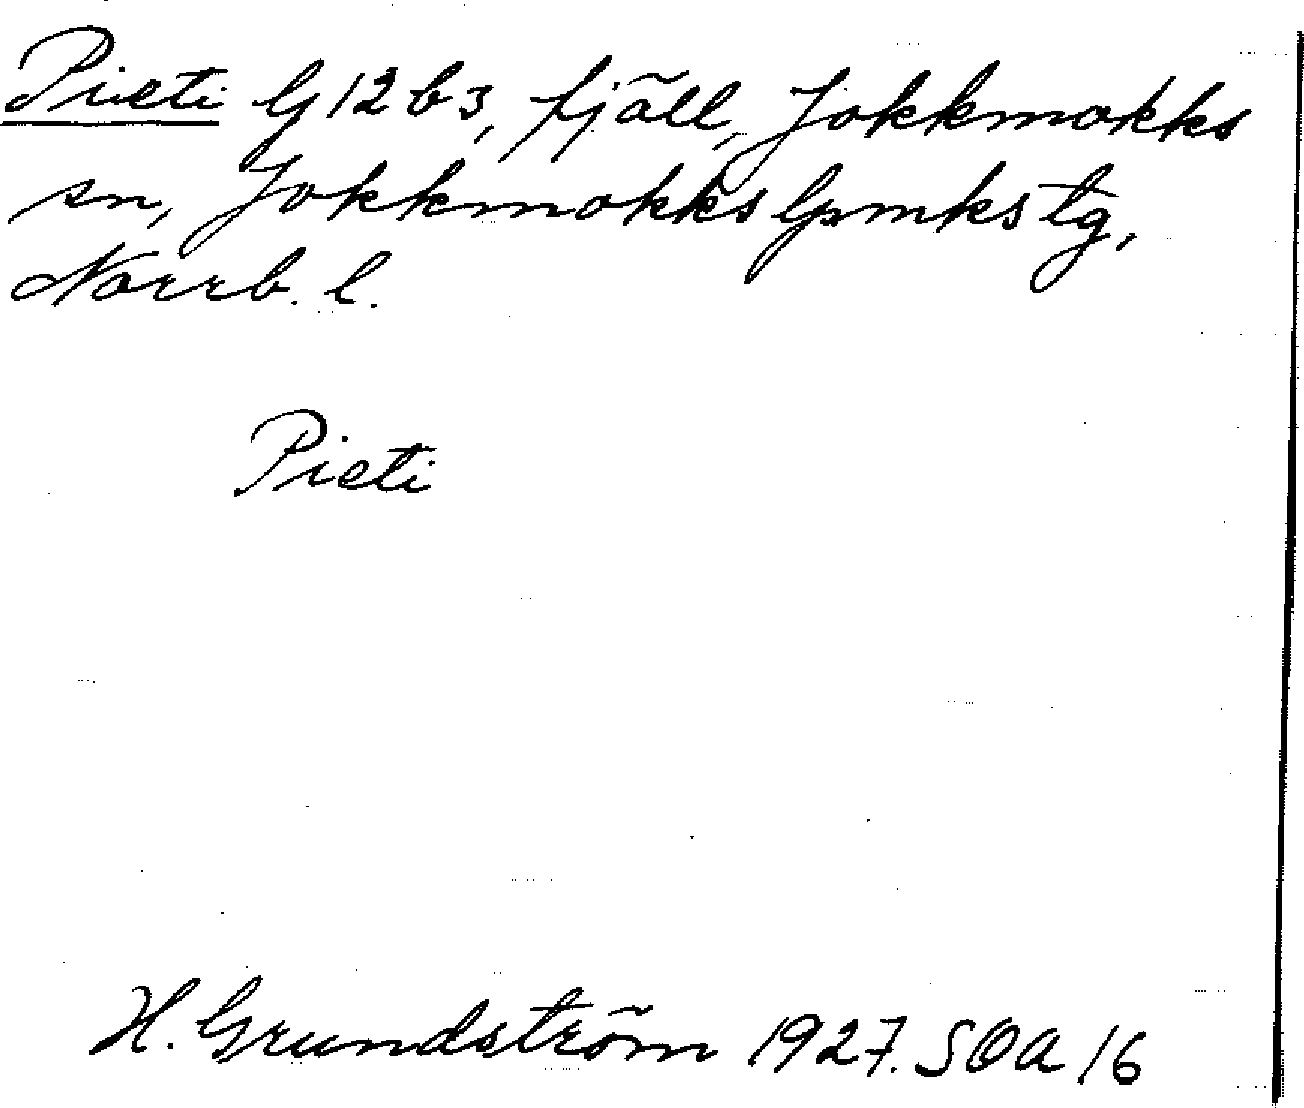 Pieti G 12 b 3, fjäll, Jokkmokks
sn, Jokkmokks lpmks tg,
Norrb. l.
Pieti
H. Grundström 1927. SOA 16